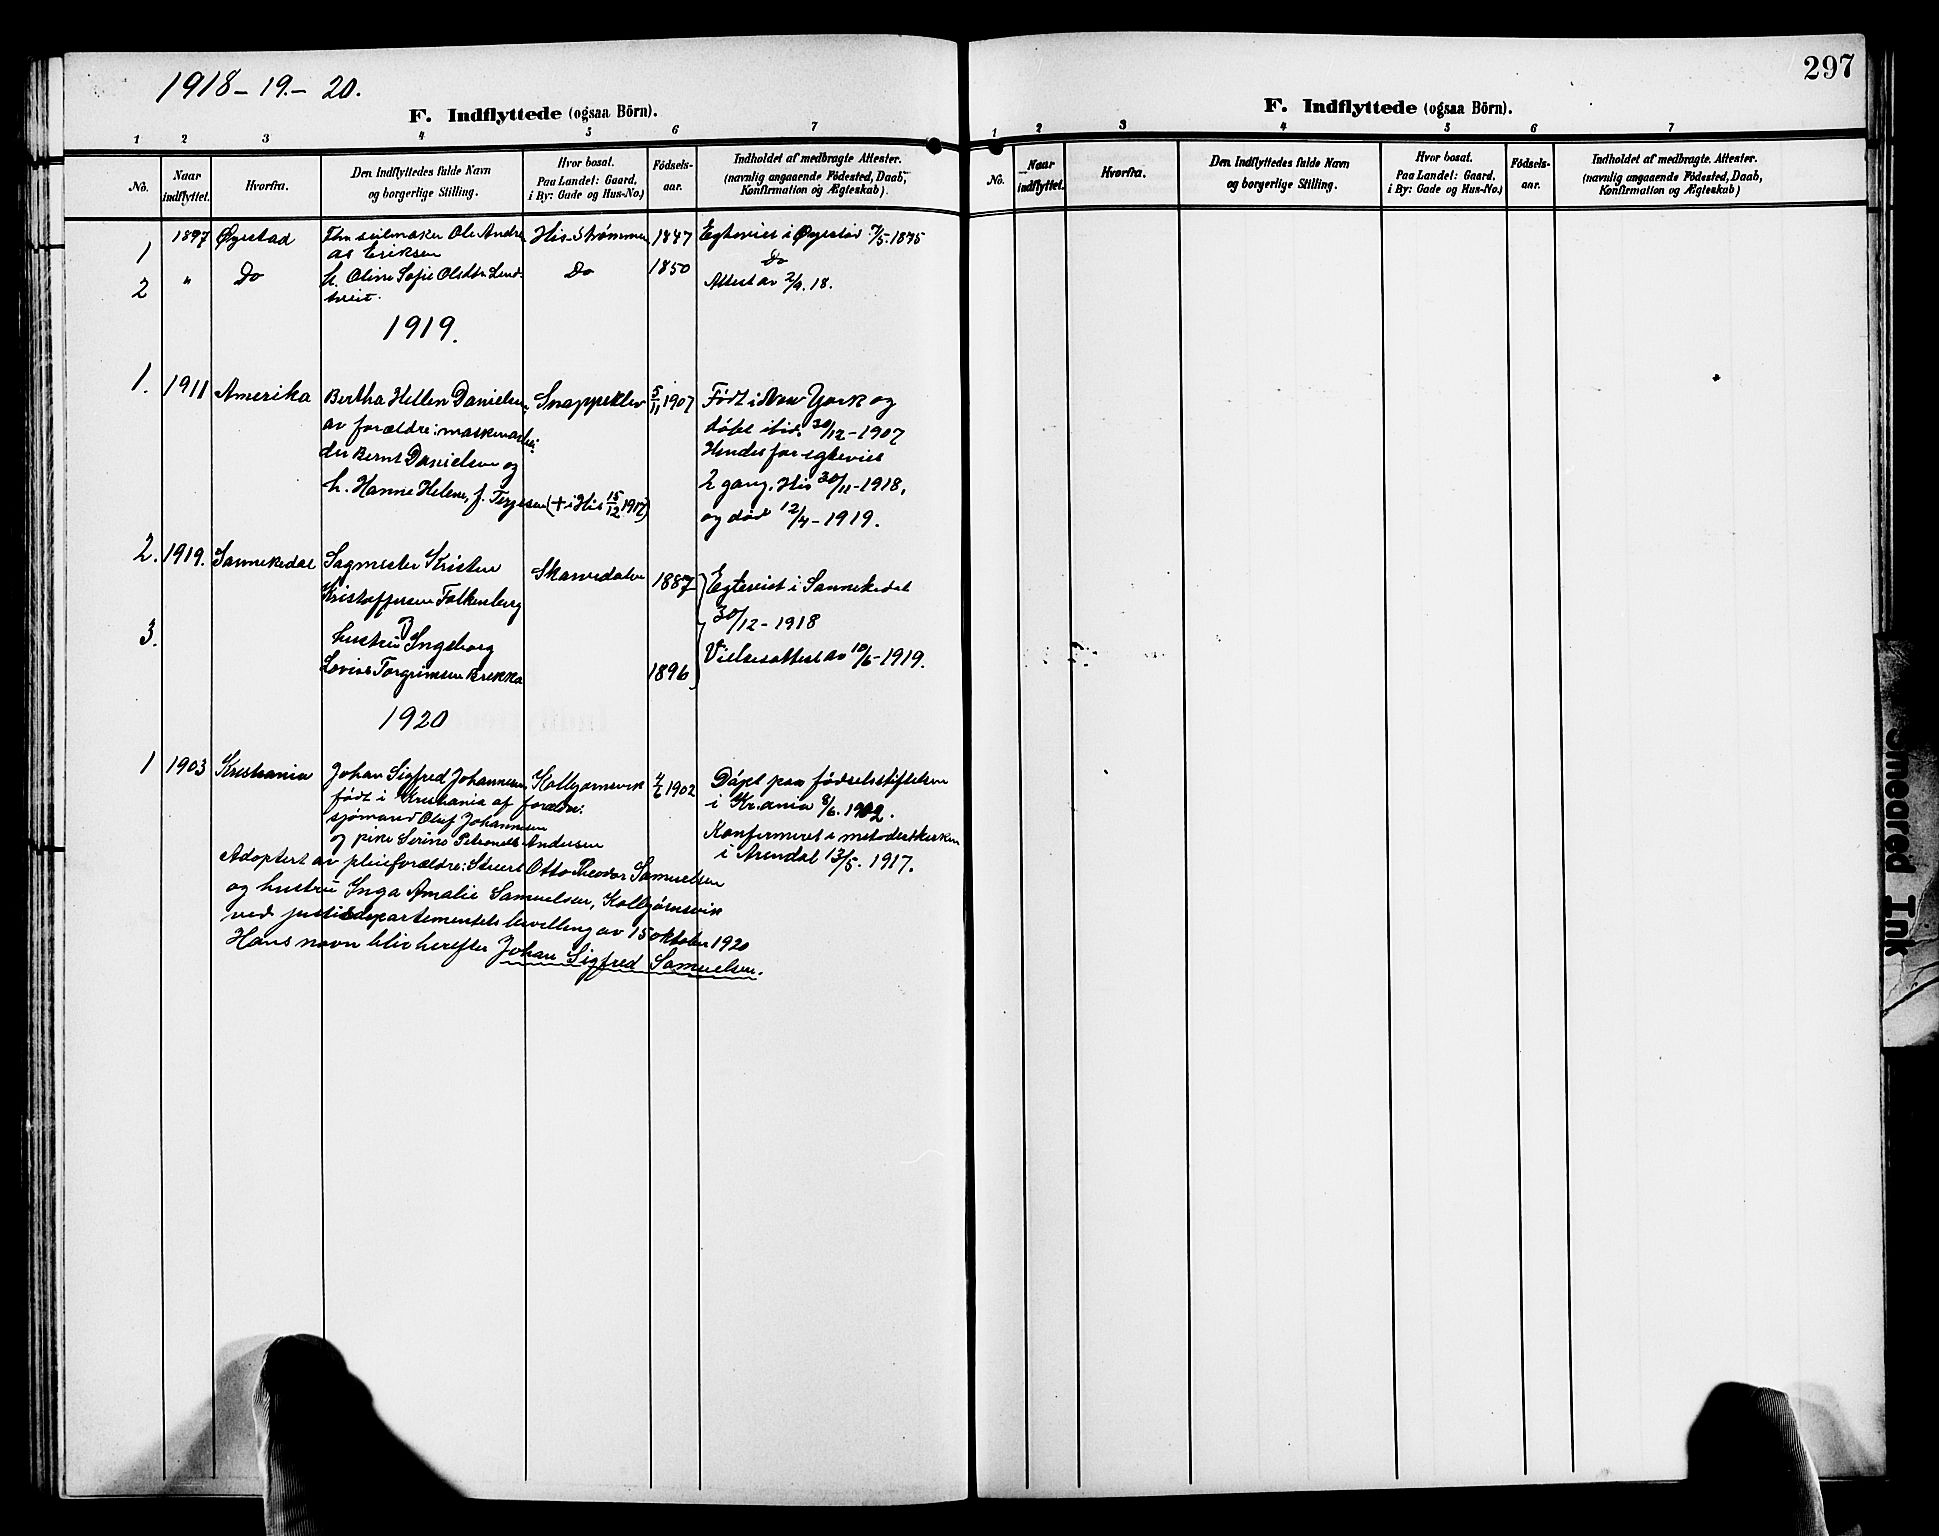 297
1918 - 19. - 20.
F. Indflyttede (ogsaa Börn).
1 2 3 4 5 6 7
No.
Naar indflyttet.
Hvorfra.
Den Indflyttedes fulde Navn
og borgerlige Stilling.
Hvor bosat.
Paa Landet: Gaard,
i By: Gade og Hus-No.)
Födsels-
aar.
Indholdet af medbragte Attester.
(navnlig angaaende Födested, Daab,
Konfirmation og Ægteskab).
1 1897 Øyestad Fhv seilmaker Ole Andre His-Strømmen 1847 Egteviet i Øyestad 7/5.1875
as Eriksen
2 " Do h. Oline Sofie Olsdtr Do 1850 Do
Attest av 2/9.18.
1919.
1. 1911 Amerika Bertha Hellen Danielsen, Snappeklev 5/11 1907 Født i New York og
av forældre: maskinarbei- døbt ibid. 30/12 - 1907
der Bernt Danielsen og Hendes far egteviet
h. Hanne Helene, f. Terjesen (+ i His 15/12 1917) 2 gang, His 30/11 - 1918,
og død 12/4 - 1919.
2. 1919. Sannekedal Sagmester Kristen Skarvedalen 1887 Egteviet i Sannekedal
Kristoffersen Falkenberg 30/12 - 1918
3. hustru Ingeborg Vielsesattest av 10/6 - 1919.
Lovise Torgrimsen Brekka 1896
1920
1 1903 Kristiania Johan Sigfred Johannesen, Kolbjørnsvik 4/6 1902 Døpt paa fødselsstiftelsen
født i Kristiania af forældre: i Kr.ania 8/6.1902.
sjømand Oluf Johannesen Konfirmeret i metodistkirken
og pike Serine Petronelle Andersen i Arendal 13/5. 1917.
Adoptert av pleieforældre: Stuert Otto Theodor Samuelsen
og hustru Inga Amalie Samuelsen, Kolbjørnsvik
ved justisdepartementets bevilling av 15 oktober 1920
Hans navn blir herefter Johan Sigfred Samuelsen.
F. Indflyttede (ogsaa Börn).
1 2 3 4 5 6 7
No.
Naar indflyttet.
Hvorfra.
Den Indflyttedes fulde Navn
og borgerlige Stilling.
Hvor bosat.
Paa Landet: Gaard,
i By: Gade og Hus-No.)
Födsels-
aar.
Indholdet af medbragte Attester.
(navnlig angaaende Födested, Daab,
Konfirmation og Ægteskab)
Smeared Ink